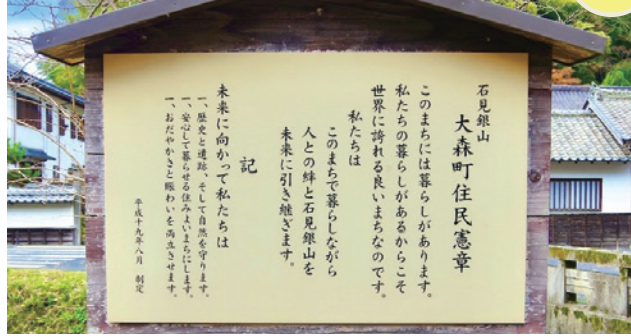 石見銀山
大森町住民憲章
このまちには暮らしがあります。
私たちの暮らしがあるからこそ
世界に誇れる良いまちなのです。
私たちは
このまちで暮らしながら
人との絆と石見銀山を
未来に引き継ぎます。
記
未来に向かって私たちは
一、歴史と遺跡、そして自然を守ります。
一、安心して暮らせる住みよいまちにします。
一、おだやかさと賑わいを両立させます。
平成十九年八月 制定